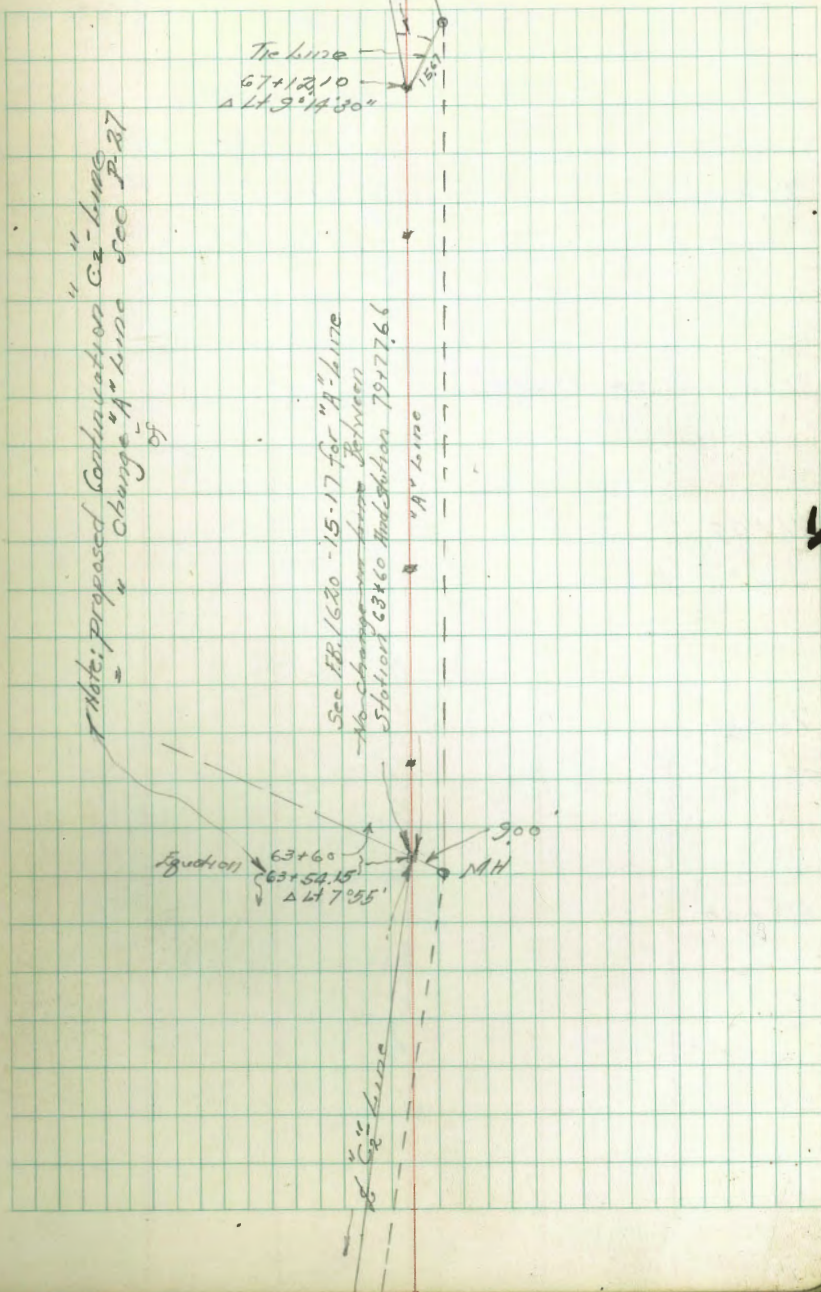 Tie Line
67+12.10
Δ Lt 9°14'30"
15.67
Note: Proposed Continuation "C2"-Line
" " Change "A" Line See P-27
of
See F.B. 1620-15-17 for "A"-Line
No change in Line Between
Station 63+60 And Station 79+77.66
"A" Line
Equation
63+60
63+54.15
Δ Lt 7°55'
9.00
MH
"C2"-Line